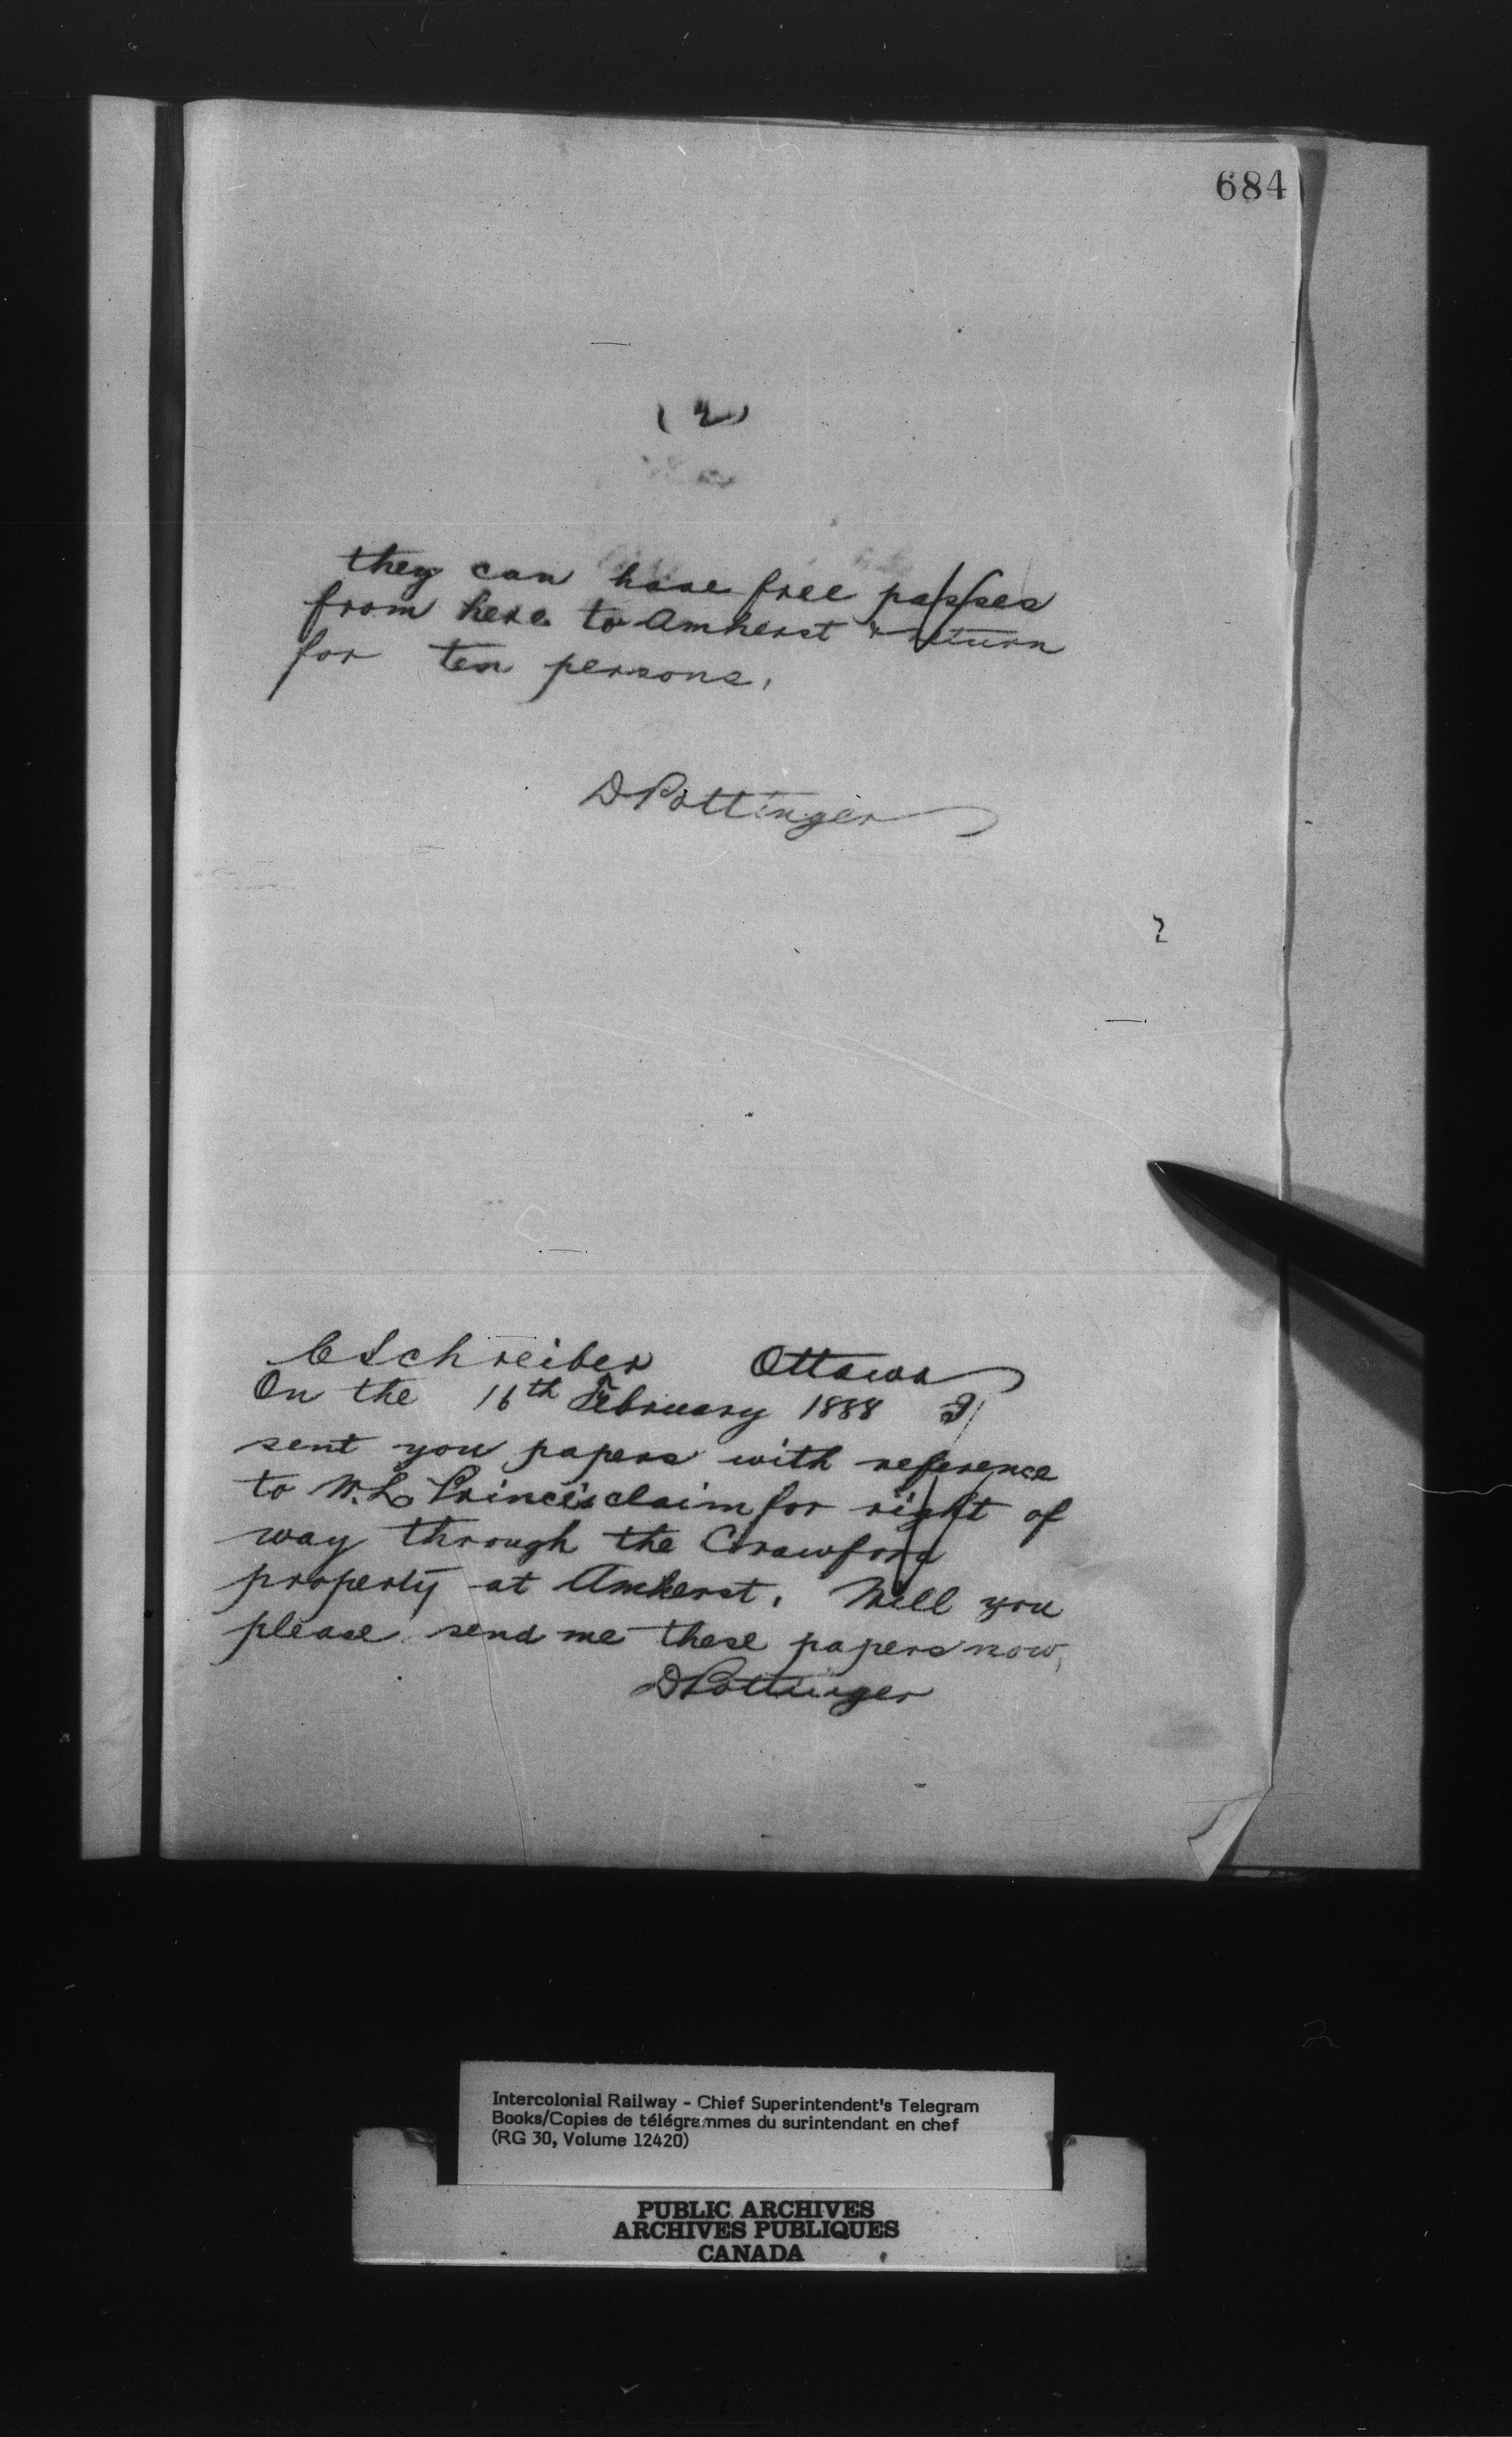 684
(2)
they can have free passes
from here to Amherst & return
for ten persons.
D Pottinger
C Schreiber Ottawa
On the 16th February 1888 I
sent you papers with reference
to W. L. Prince's claim for right of
way through the Crawford
property at Amherst. Will you
please send me these papers now,
D Pottinger
Intercolonial Railway - Chief Superintendent's Telegram
Books/Copies de télégrammes du surintendant en chef
(RG 30, Volume 12420)
PUBLIC ARCHIVES
ARCHIVES PUBLIQUES
CANADA